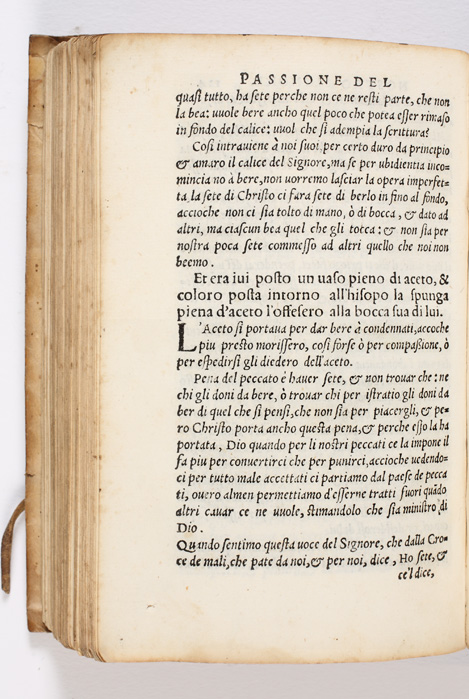 PASSIONE DEL
quasi tutto, ha sete perche non ce ne resti parte, che non
la bea: vuole bere ancho quel poco che potea esser rimaso
in fondo del calice: vuol che si adempia la scrittura?
Così intraviene à noi suoi, per certo duro da principio
& amaro il calice del Signore, ma se per ubidientia inco-
mincia nò à bere, non vorremo lasciar la opera imperfet-
ta, la sete di Christo ci fara sete di berlo in fino al fondo,
accioche non ci sia tolto di mano, ò di bocca, & dato ad
altri, ma ciascun bea quel che gli tocca: & non sia per
nostra poca sete commesso ad altri quello che noi non
beemo.
Et era iui posto un uaso pieno di aceto, &
coloro posta intorno all'hisopo la spunga
piena d'aceto l'offesero alla bocca sua di lui.
L'Aceto si portaua per dar bere à condennati, accoche
piu presto morissero, così forse ò per compassione, ò
per espedirsi gli diedero dell'aceto.
Pena del peccato è hauer sete, & non trouar che: ne
chi gli doni da bere, ò trouar chi per istratio gli doni da
ber di quel che si pensi, che non sia per piacergli, & pe-
ro Christo porta ancho questa pena, & perche esso la ha
portata, Dio quando per li nostri peccati ce la impone il
fa piu per conuertirci che per punirci, accioche uedendo-
ci per tutto male accettati ci partiamo dal paese de pecca
ti, ouero almen permettiamo d'esserne tratti fuori quādo
altri cauar ce ne uuole, stimandolo che sia ministro di
Dio.
Quando sentimo questa uoce del Signore, che dalla Cro-
ce de mali, che pate da noi, & per noi, dice, Ho sete, &
ce'l dice,